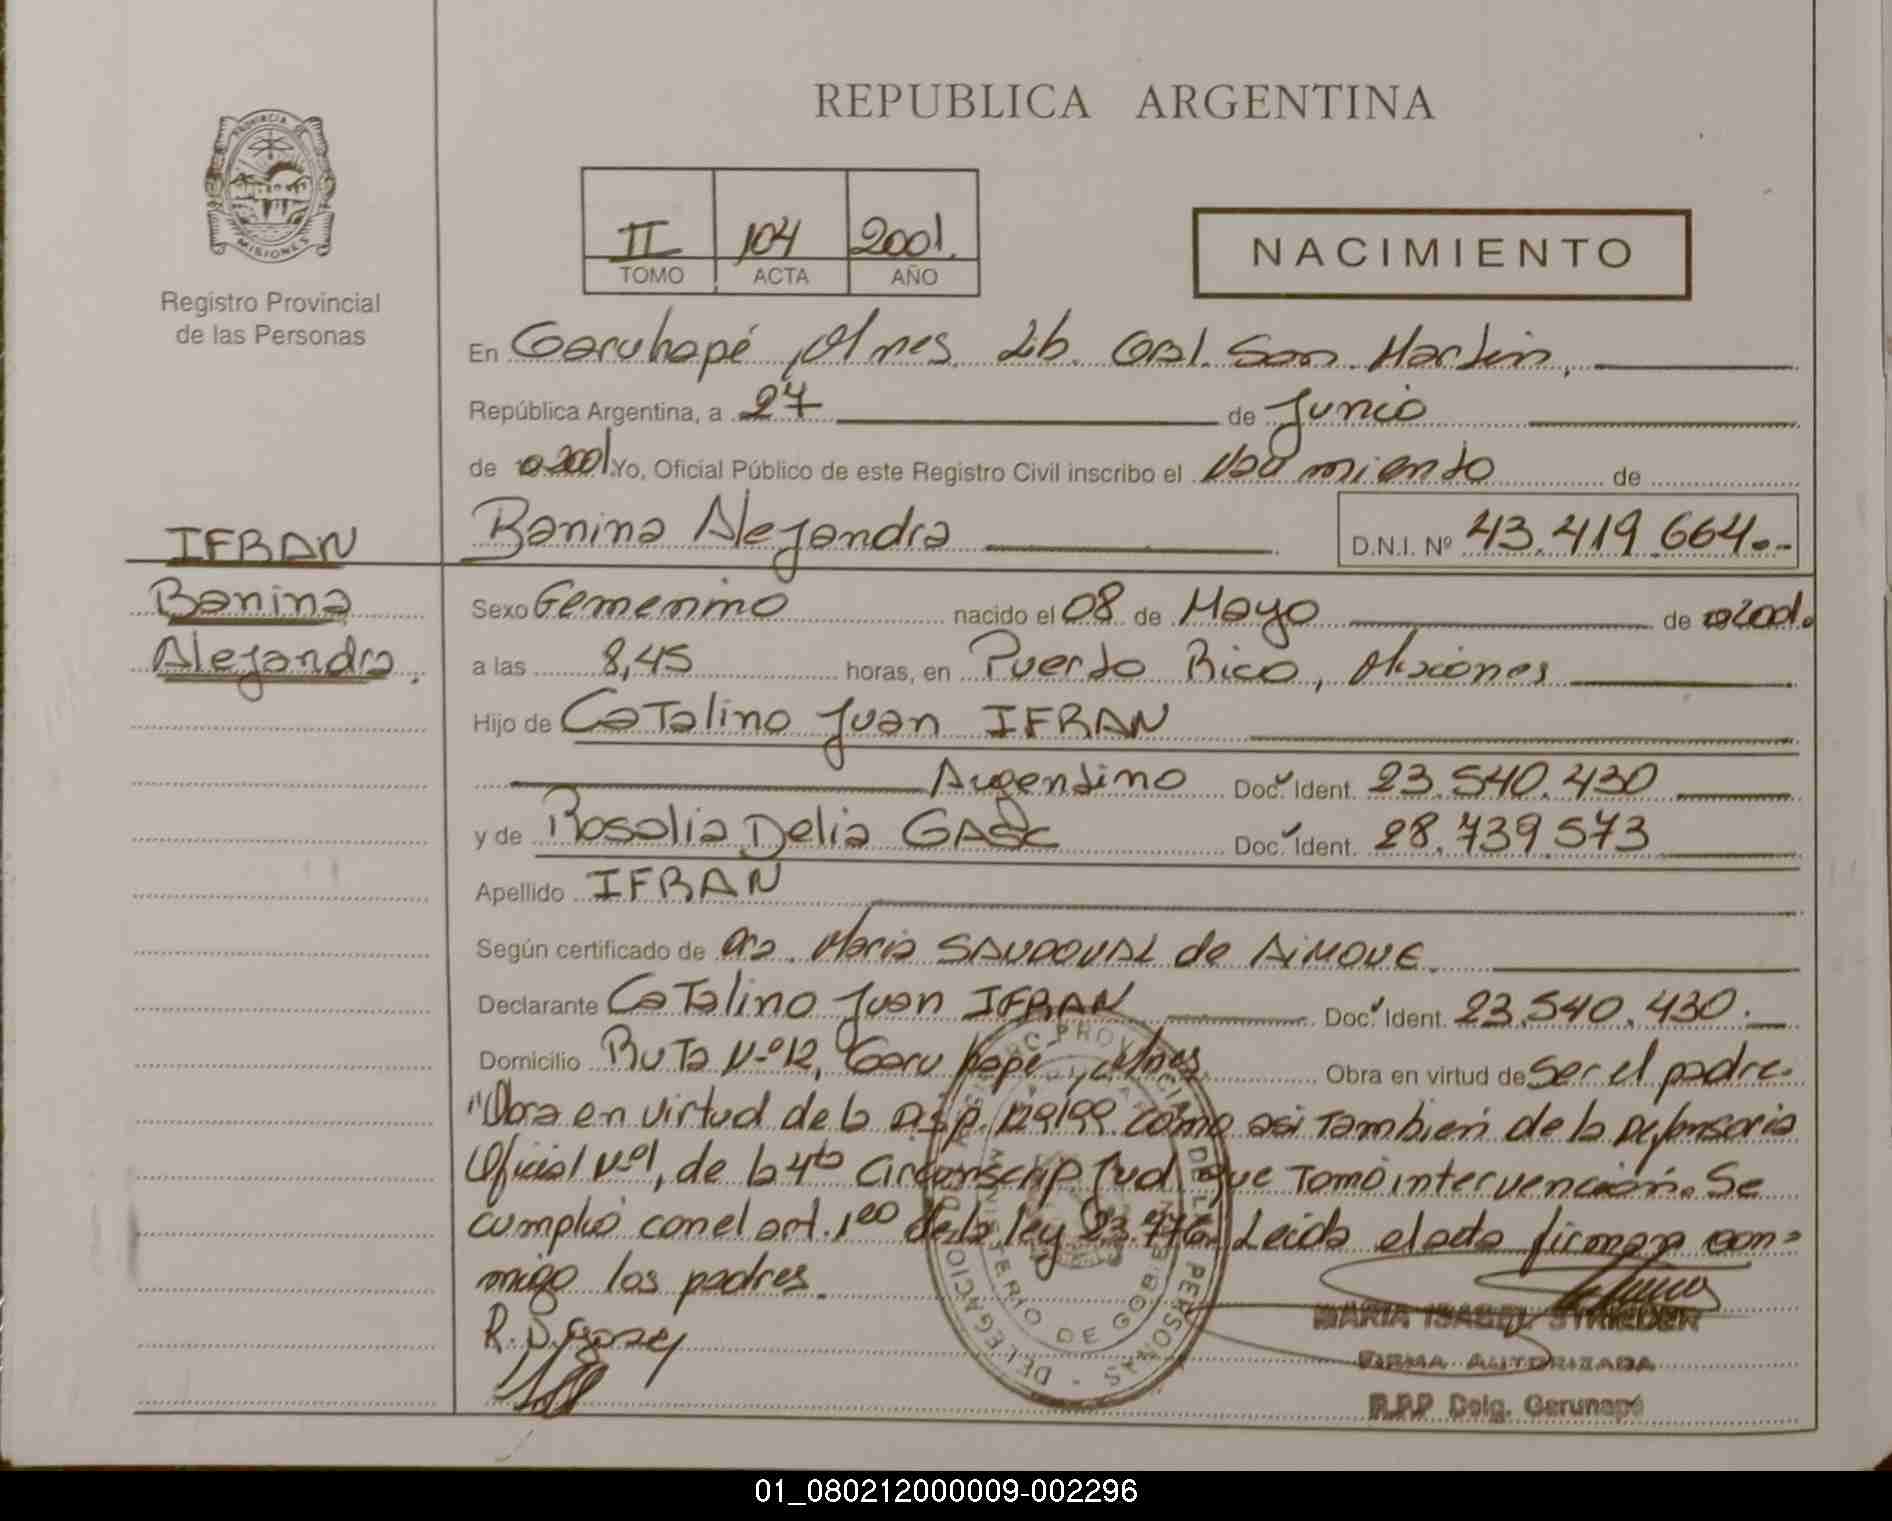 REPUBLICA ARGENTINA
PROVINCIA DE
MISIONES
Registro Provincial
de las Personas
II 104 2001.
TOMO ACTA AÑO
NACIMIENTO
En Garuhapé, Mnes. Lib. Gral. San Martín,
República Argentina, a 27 de Junio
de 2001 Yo, Oficial Público de este Registro Civil inscribo el Nacimiento de
IFRAN
Banina Alejandra D.N.I. Nº 43.419.664.-
Banina
Alejandra.
Sexo Femenino nacido el 08 de Mayo de 2001.
a las 8,45 horas, en Puerto Rico, Misiones
Hijo de Catalino Juan IFRAN
Argentino Doc. Ident. 23.540.430
y de Rosalia Delia Doc. Ident. 28.739.573
Apellido IFRAN
Según certificado de Dra. Maria SANDOVAL de AiMONE.
Declarante Catalino Juan IFRAN Doc. Ident. 23.540.430.
Domicilio Ruta Nº 12, Garuhapé, Mnes. Obra en virtud de Ser el padre.
"Obra en virtud de la Disp. 129/99. como asi Tambien de la Defensoria
Oficial Nº1, de la 4ta Circunscrip Jud. que Tomó intervención. Se
cumplió con el art. 1eo de la ley 23.776. Leida el acta firman con-
migo los padres.
MARIA ISABEL STRIEDER
FIRMA AUTORIZADA
R.P.P Delg. Garuhapé
MINISTERIO DE GOB
01_080212000009-002296